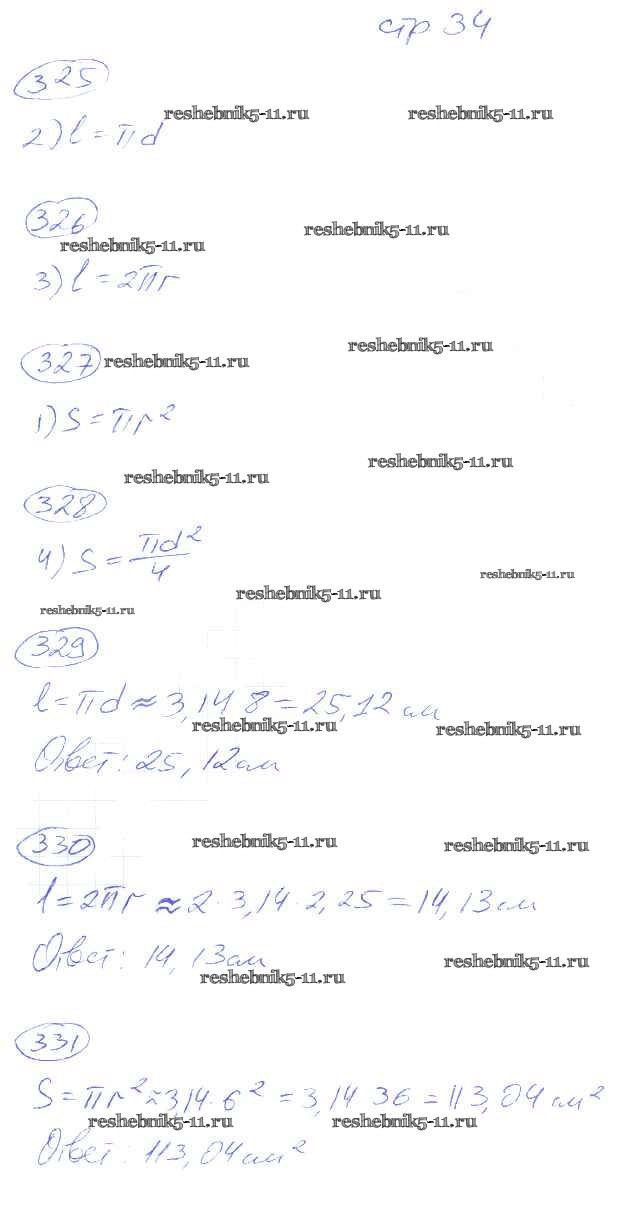 стр. 34
325
reshebnik5-11.ru reshebnik5-11.ru
2) l = πd
326
reshebnik5-11.ru
reshebnik5-11.ru
3) l = 2πr
327 reshebnik5-11.ru reshebnik5-11.ru
1) S = πr²
reshebnik5-11.ru
reshebnik5-11.ru
328
4) S = πd²/4
reshebnik5-11.ru
reshebnik5-11.ru
reshebnik5-11.ru
329
l = πd ≈ 3,14 8 = 25,12 см
reshebnik5-11.ru reshebnik5-11.ru
Ответ: 25,12 см
330 reshebnik5-11.ru reshebnik5-11.ru
l = 2πr ≈ 2 · 3,14 · 2,25 = 14,13 см
Ответ: 14,13 см
reshebnik5-11.ru reshebnik5-11.ru
331
S = πr² ≈ 3,14 · 6² = 3,14 36 = 113,04 см²
reshebnik5-11.ru reshebnik5-11.ru
Ответ: 113,04 см²